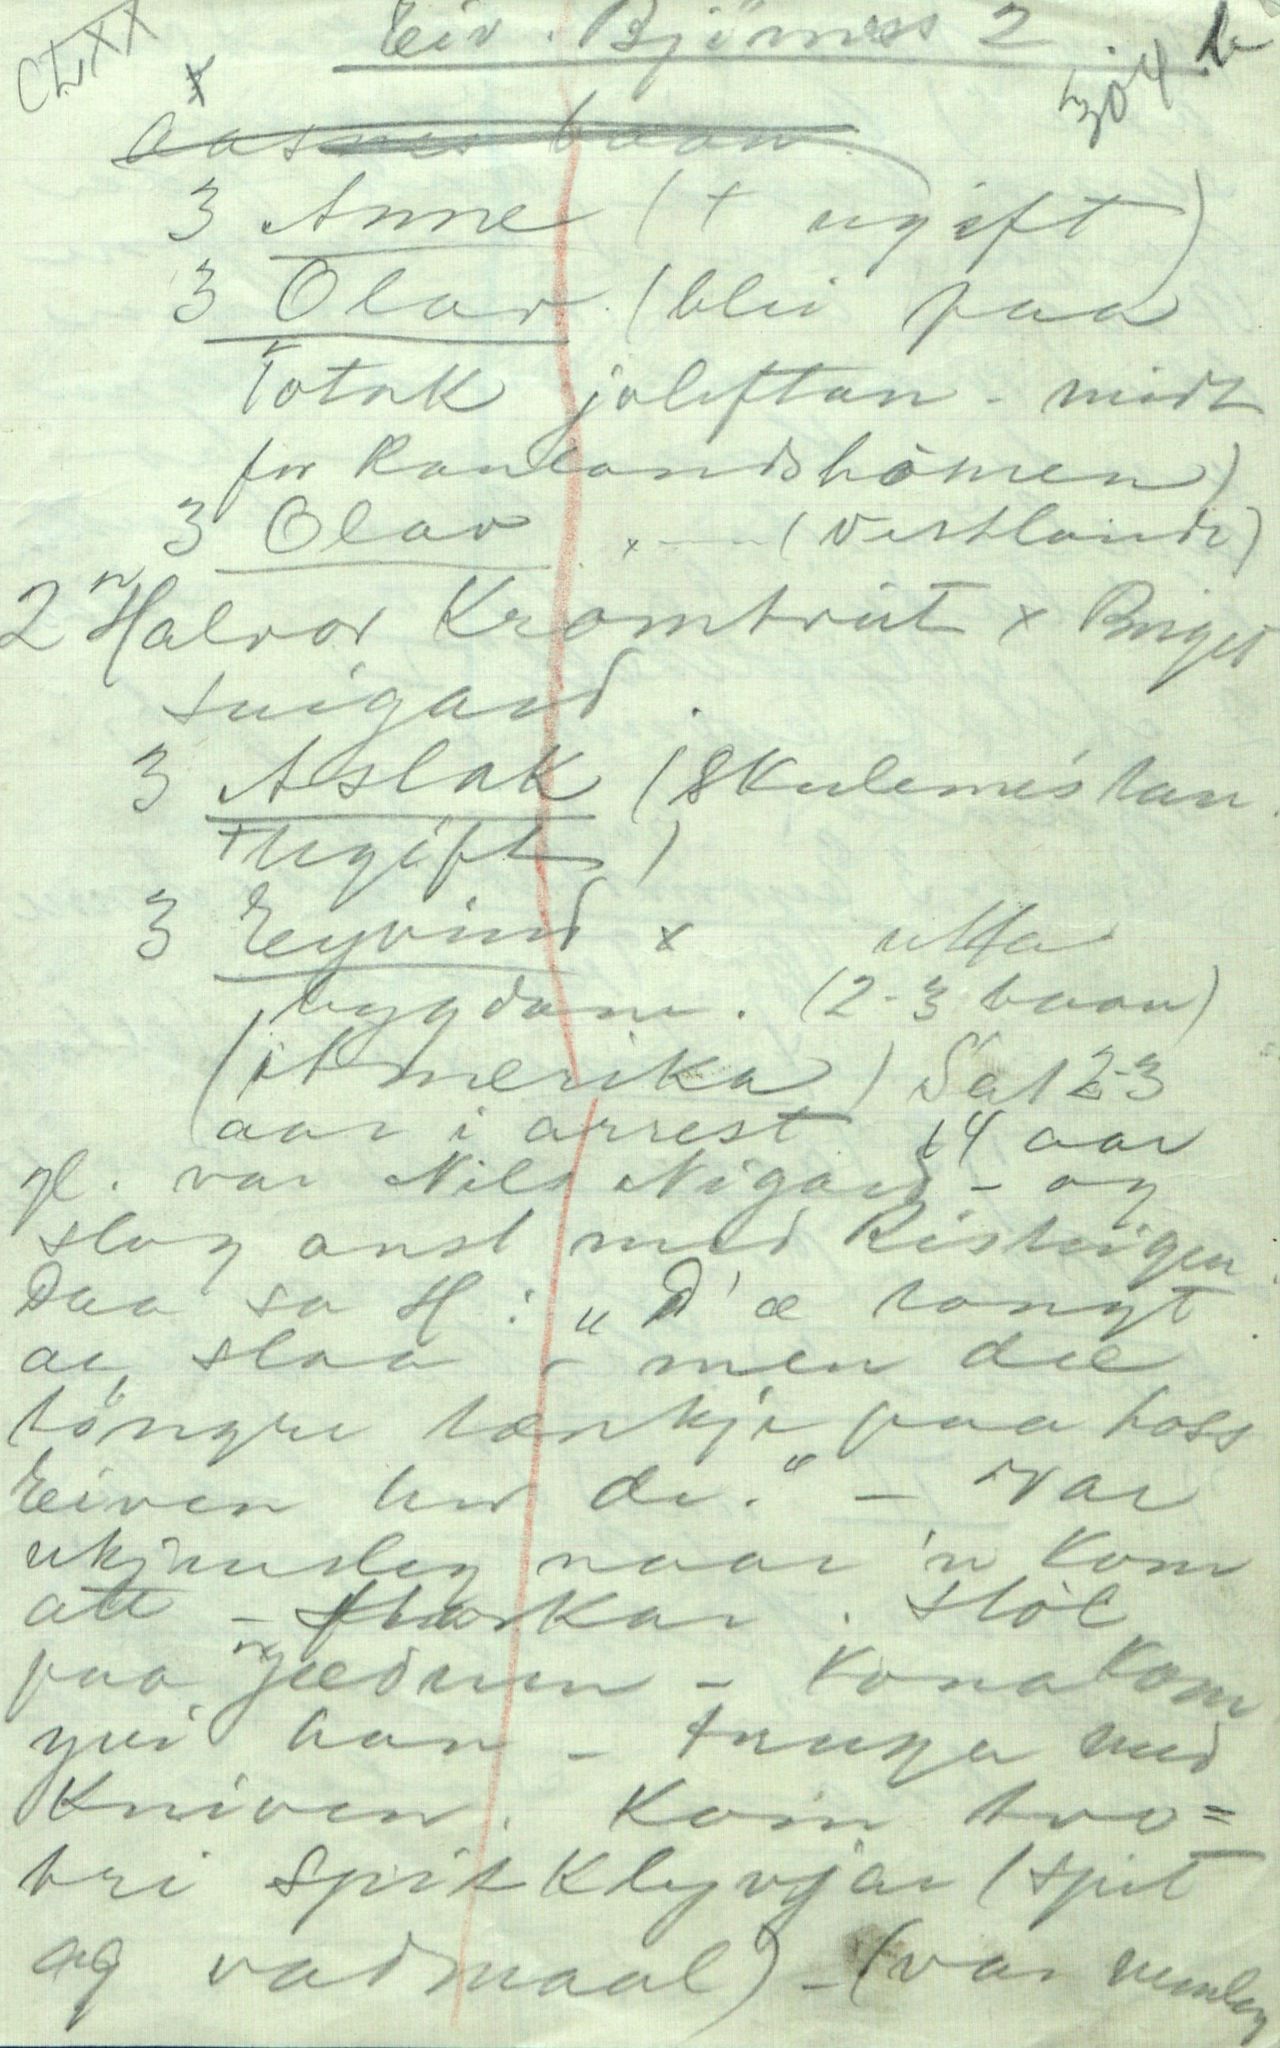 CLXX
Eiv. Björnes 2
304 b
x
Aasnes baan
3 Anne († ugift)
3 Olav (blei paa
Totak joleftan - midt
for Raulandshömen)
3 Olav x (Vestlandi)
2 Halvor Kromtveit x Birgit
suigard.
3 Aslak (Skulemeistar
† ugift)
3 Eyvind x utta
bygdann. (2-3 baan)
(i Amerika) Sat 2-3
aar i arrest 14 aar
gl. var Nils Nigard - og
slog onst med Ristveigen
Daa sa H: "D'æ tongt
ae slaa - men dæ
töngre tænkje paa hoss
Eiven hev de." - Var
ukjenneleg naar 'n kom
att - skarkar. stöl
paa - Kona kom
yvi han - truga med
Kniven. Kom tvo=
tri spitklyvjar (spit
og vadmaal) - (var nemleg